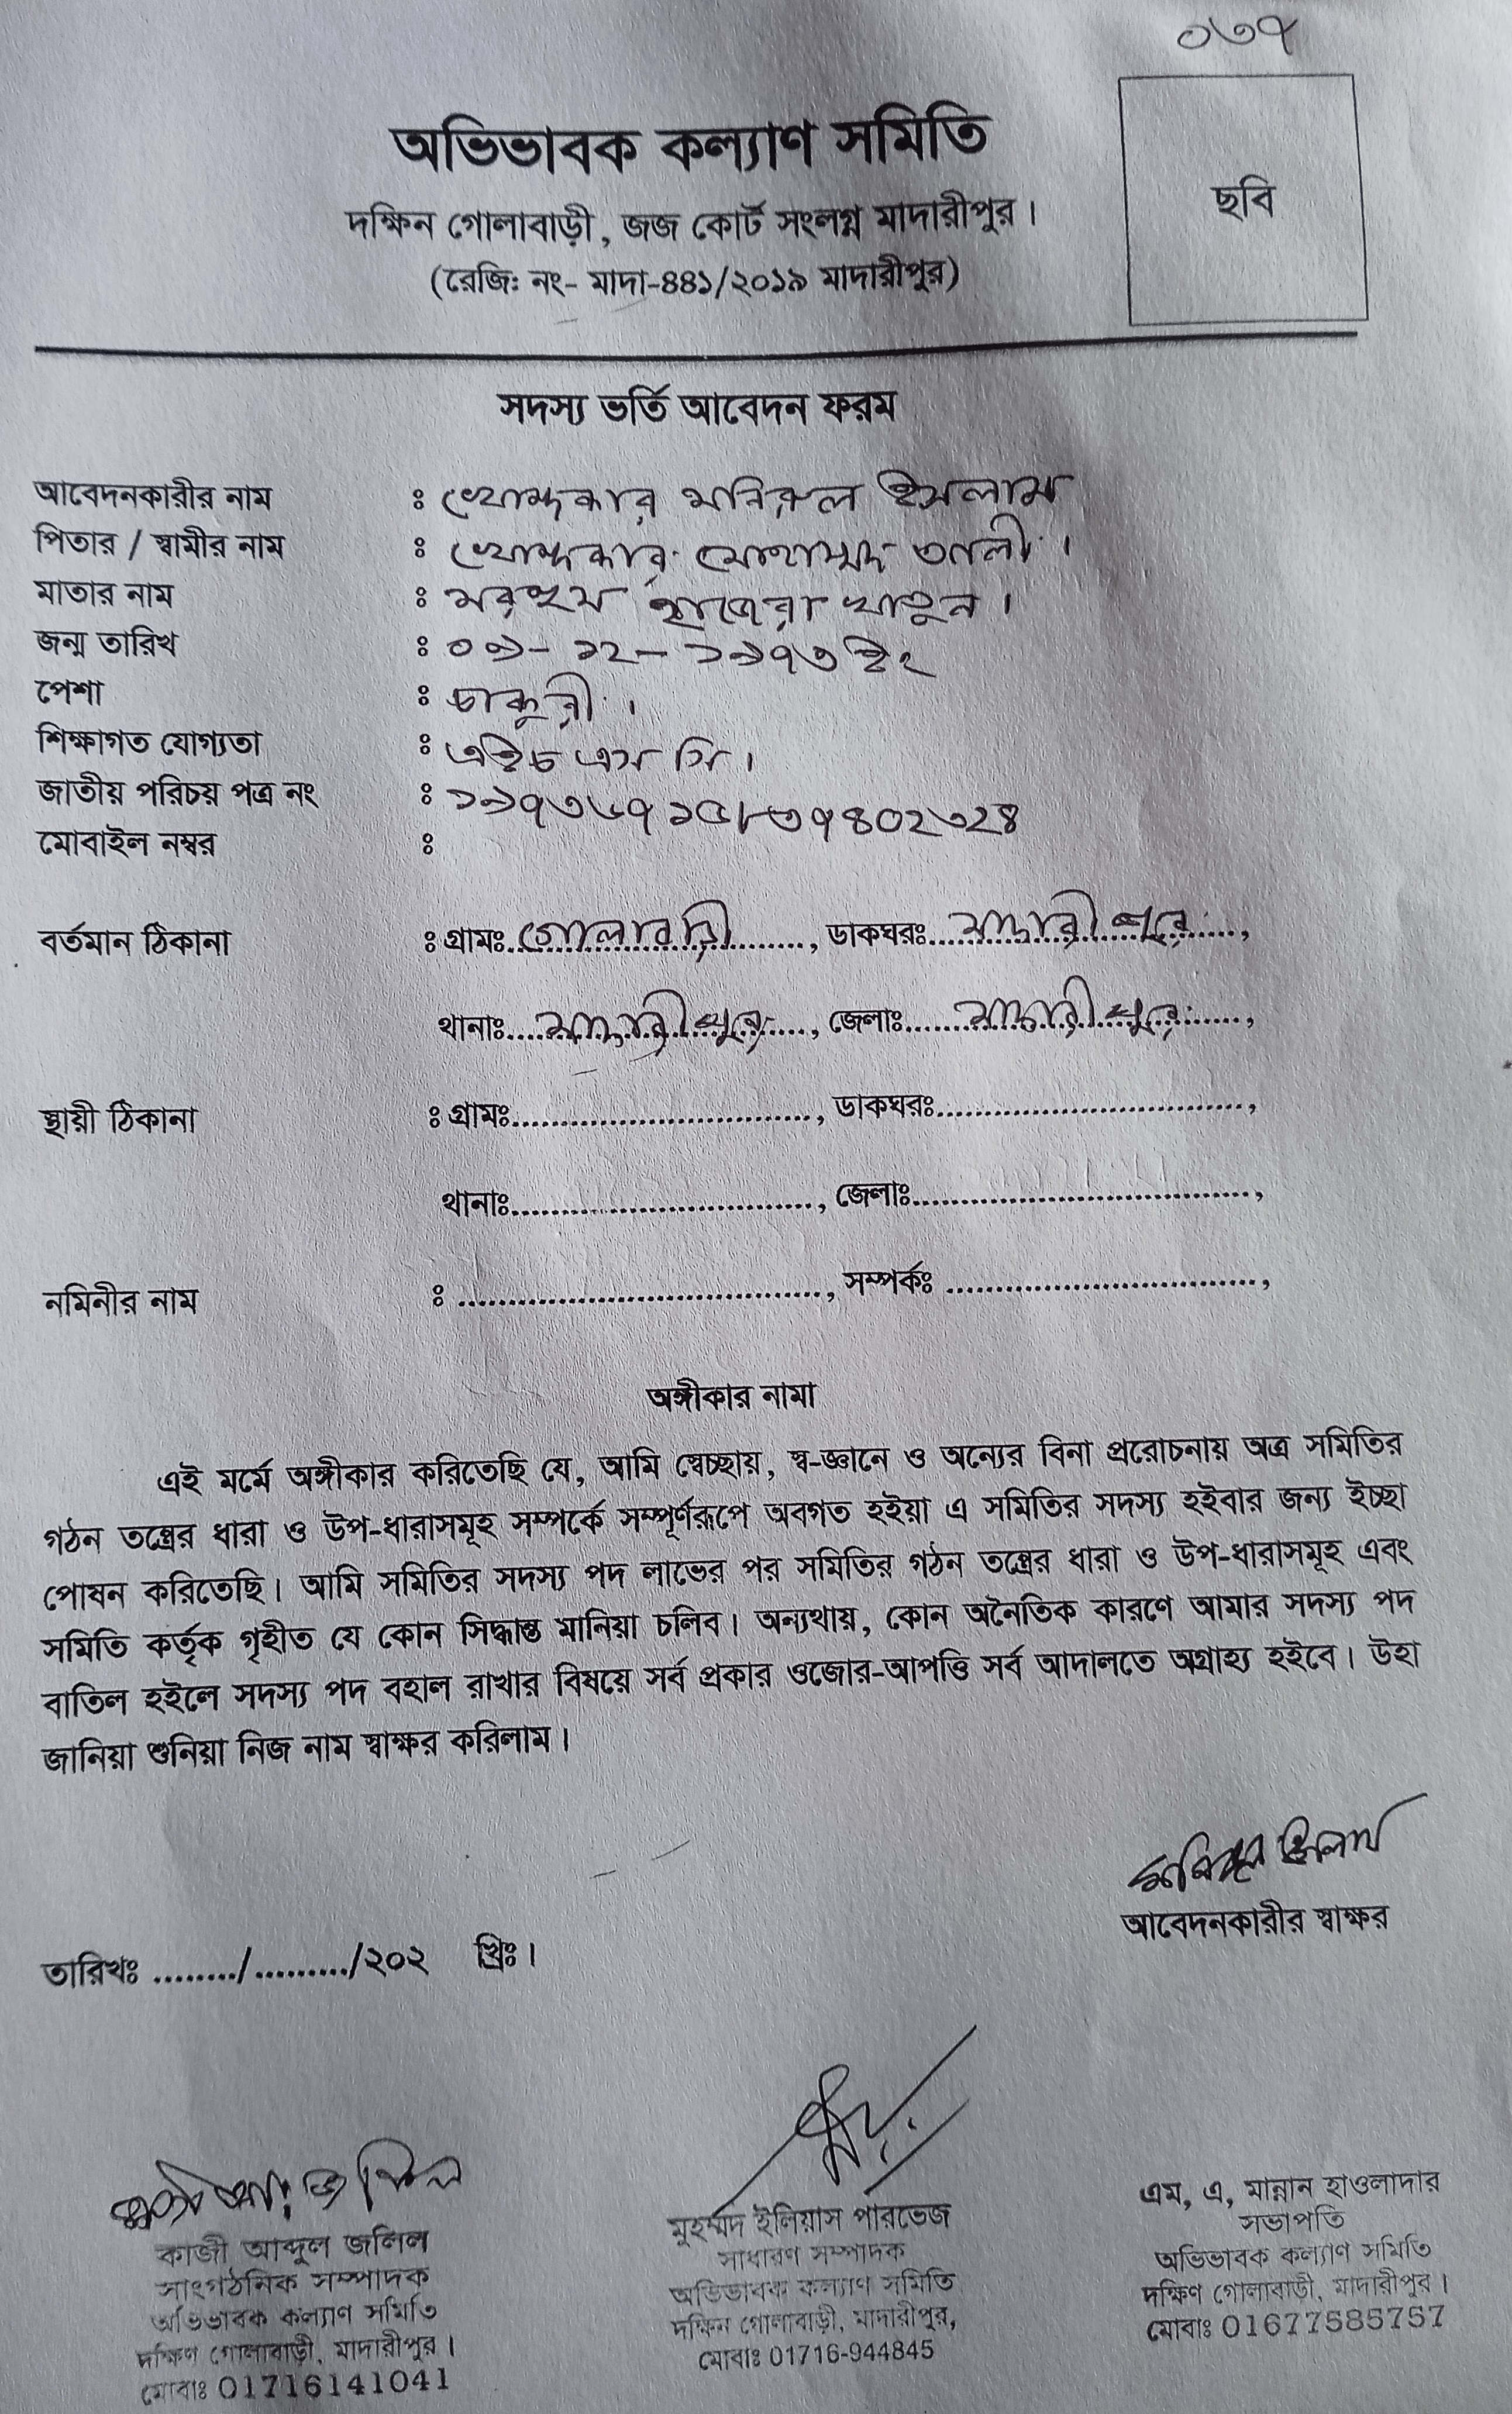 ০৩৭
অভিভাবক কল্যাণ সমিতি
দক্ষিন গোলাবাড়ী, জজ কোর্ট সংলগ্ন মাদারীপুর।
(রেজিঃ নং- মাদা-৪৪১/২০১৯ মাদারীপুর)
ছবি
সদস্য ভর্তি আবেদন ফরম
আবেদনকারীর নাম : খোন্দকার মনিরুল ইসলাম
পিতার / স্বামীর নাম : খোন্দকার মোহাম্মদ আলী।
মাতার নাম : মরহুম হাজেরা খাতুন।
জন্ম তারিখ : ০৯-১২-১৯৭৩ ইং
পেশা : চাকুরী।
শিক্ষাগত যোগ্যতা : এইচ এস সি।
জাতীয় পরিচয় পত্র নং :
মোবাইল নম্বর :
বর্তমান ঠিকানা : গ্রামঃ গোলাবাড়ী, ডাকঘরঃ মাদারীপুর,
থানাঃ মাদারীপুর, জেলাঃ মাদারীপুর,
স্থায়ী ঠিকানা : গ্রামঃ............................, ডাকঘরঃ............................,
থানাঃ............................, জেলাঃ............................,
নমিনীর নাম : ............................, সম্পর্কঃ ............................,
অঙ্গীকার নামা
এই মর্মে অঙ্গীকার করিতেছি যে, আমি স্বেচ্ছায়, স্ব-জ্ঞানে ও অন্যের বিনা প্ররোচনায় অত্র সমিতির
গঠন তন্ত্রের ধারা ও উপ-ধারাসমূহ সম্পর্কে সম্পূর্ণরূপে অবগত হইয়া এ সমিতির সদস্য হইবার জন্য ইচ্ছা
পোষন করিতেছি। আমি সমিতির সদস্য পদ লাভের পর সমিতির গঠন তন্ত্রের ধারা ও উপ-ধারাসমূহ এবং
সমিতি কর্তৃক গৃহীত যে কোন সিদ্ধান্ত মানিয়া চলিব। অন্যথায়, কোন অনৈতিক কারণে আমার সদস্য পদ
বাতিল হইলে সদস্য পদ বহাল রাখার বিষয়ে সর্ব প্রকার ওজোর-আপত্তি সর্ব আদালতে অগ্রাহ্য হইবে। উহা
জানিয়া শুনিয়া নিজ নাম স্বাক্ষর করিলাম।
মনিরুল ইসলাম
আবেদনকারীর স্বাক্ষর
তারিখঃ ......../........./২০২ খ্রিঃ।
কাজী আব্দুল জলিল
সাংগঠনিক সম্পাদক
অভিভাবক কল্যাণ সমিতি
দক্ষিণ গোলাবাড়ী, মাদারীপুর।
মোবাঃ 01716141041
মুহম্মদ ইলিয়াস পারভেজ
সাধারণ সম্পাদক
অভিভাবক কল্যাণ সমিতি
দক্ষিন গোলাবাড়ী, মাদারীপুর,
মোবাঃ 01716-944845
এম, এ, মান্নান হাওলাদার
সভাপতি
অভিভাবক কল্যাণ সমিতি
দক্ষিণ গোলাবাড়ী, মাদারীপুর।
মোবাঃ 01677585757